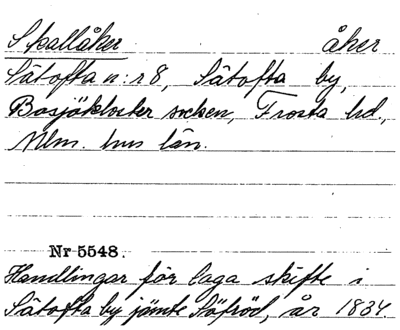 Skallåker åker
Sätofta n:r 8, Sätofta by,
Bosjökloster socken, Frosta hd.,
Mlm. hus län.
Nr 5548.
Handlingar för laga skifte i
Sätofta by jämte Söfröd, år 1834.